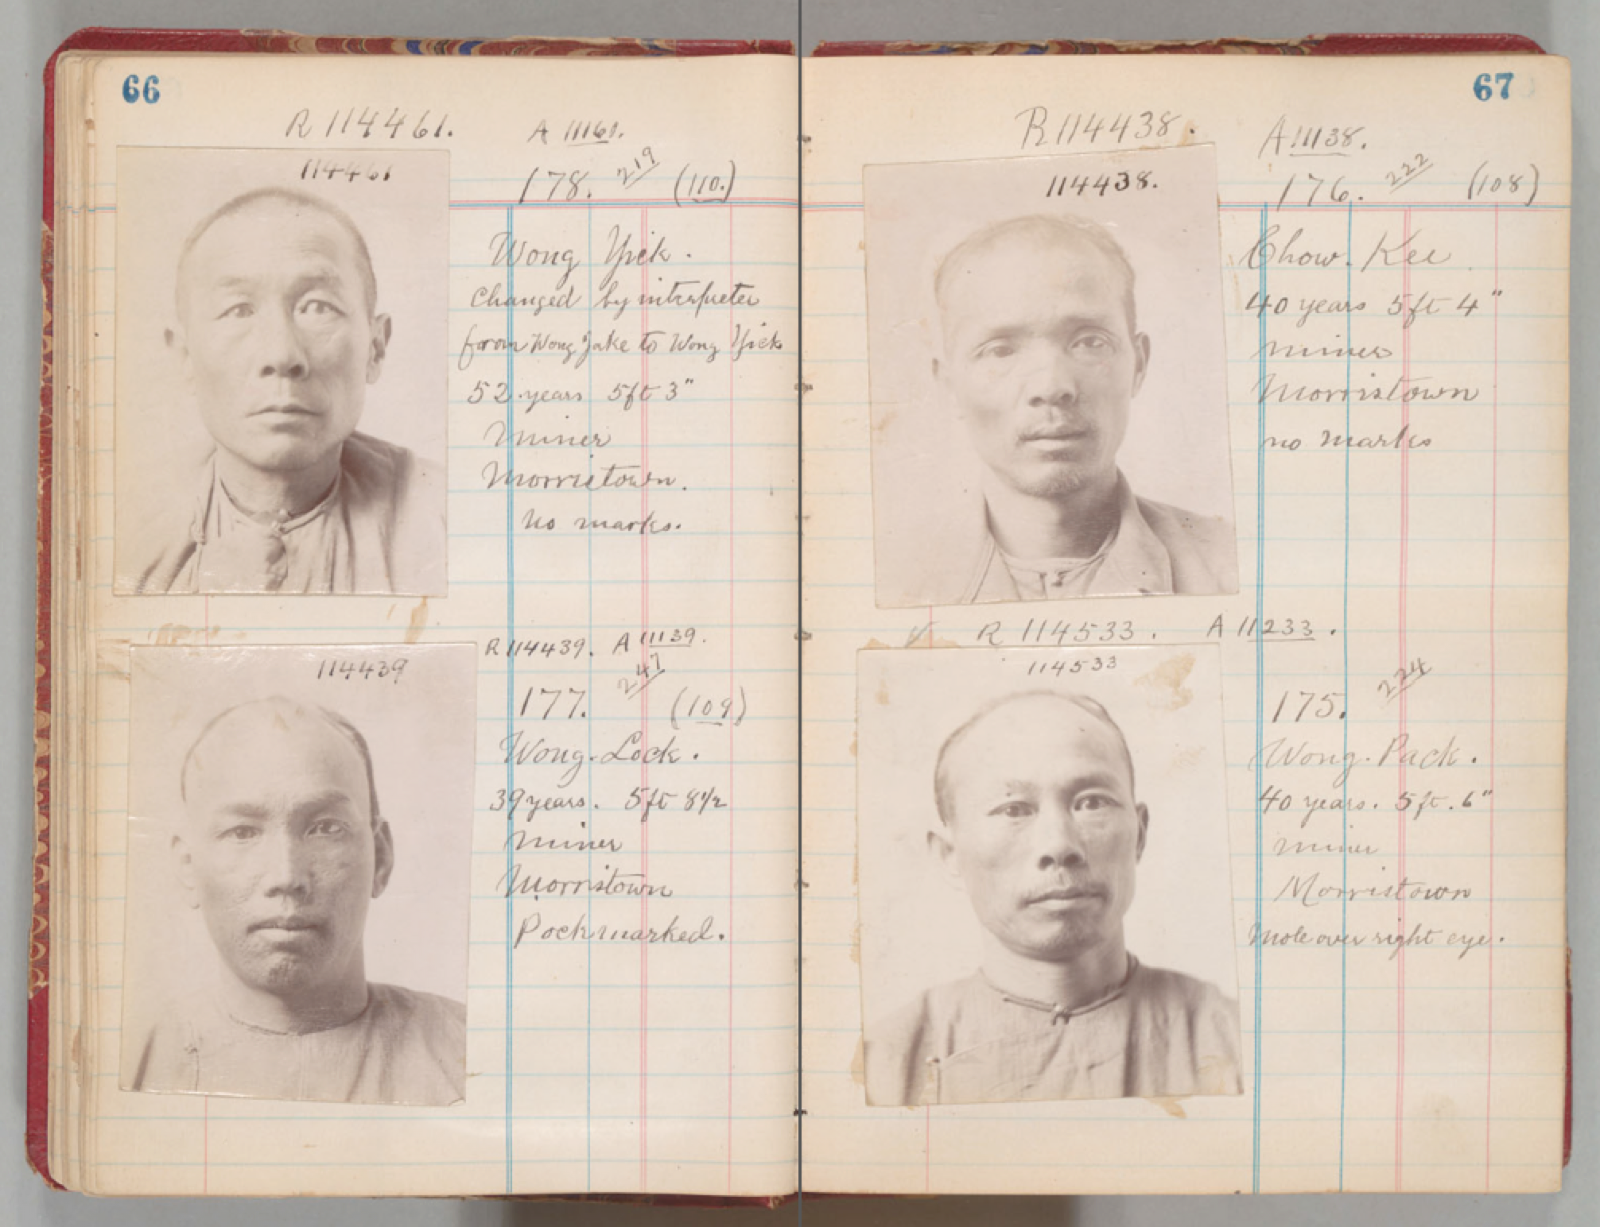 66
R 114461.
A 11161.
114461
178. 219 (110.)
Wong Yick.
Changed by intrepreter
from Wong Jake to Wong Yick
52 years 5ft 3"
Miner
Morristown.
no marks.
R 114439. A 11139.
114439
247
177. (109)
Wong Lock.
39 years. 5ft 8½
Miner
Morristown
Pockmarked.
67
R 114438.
A 11138.
114438.
176. 222 (108)
Chow. Kee
40 years 5ft 4"
miner
Morristown
no marks
R 114533. A 11233.
114533
175. 224
Wong. Pack.
40 years. 5ft. 6"
miner
Morristown
Mole over right eye.